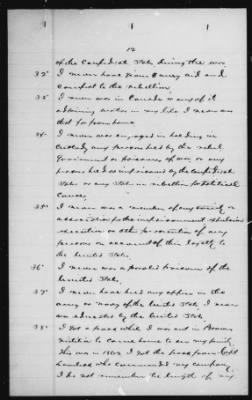 12
of the Confederate States during the war.
32" I never have given any aid and
comfort to the rebellion.
33" I never was in Canada or any of its
adjoining waters in my life I never was
far from home.
34" I never was engaged in holding in
custody any persons held by the rebel
Government as prisoners of war or any
persons held or imprisoned by the Confederate
States or any State in rebellion for political
causes.
35" I never was a member of any
for the imprisonment
execution or other of any
persons on account of their loyalty to
the United States.
36" I never was a paroled prisoner of the
United States.
37" I never have held any office in the
army or navy of the United States. I never
was educated by the United States.
38" I got a pass while I was out in Browns
militia to come home to see my family
this was in 1864. I got the pass from Capt
who commanded my company.
I do not remember the length of my